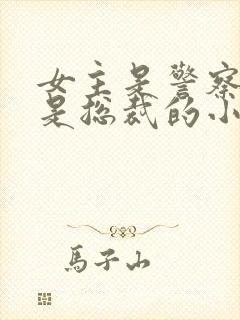 女主是警察
是总裁的小
馬子山